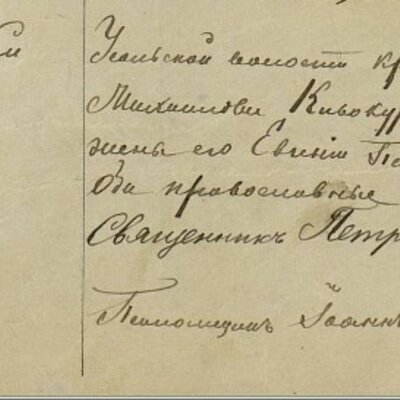 Усольской волости кр
Михаилови Кивоку
жены его Евгенiи Па
Оба православные
Священникъ Петр
Псаломщикъ Iоаннъ